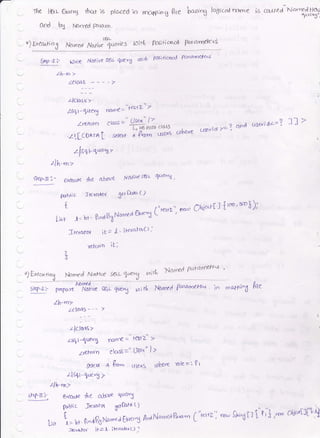 The HQL Query that is placed in mapping file having logical name is called Named HQL query.
and by Named param.
*) Executing Named Native SQL queries with positional parameters
Step-1:- write Native SQL query with positional parameters
<h-m>
<class - - - - >
- - - -
</class>
<sql-query name="test2">
<return class="User"/>
<![CDATA[ select * from users where userid>=? and userid<=? ]]>
</sql-query>
</h-m>
Step-2:- execute the above Native SQL query,
public Iterator getData()
{
List l = ht.findByNamedQuery("test2", new Object[]{100, 500});
Iterator it = l.iterator();
return it;
}
*) Executing Named Native SQL query with Named parameters,
Step-1:- prepare Named Native SQL query with Named parameters in mapping file
<h-m>
<class - - - >
- - - -
</class>
<sql-query name="test2">
<return class="User"/>
select * from users where role=:p1
</sql-query>
</h-m>
Step-2:- execute the above query
public Iterator getData()
{
List l = ht.findByNamedQueryAndNamedParam("test2", new String[]{"p1"}, new Object[]{
Iterator it = l.iterator();